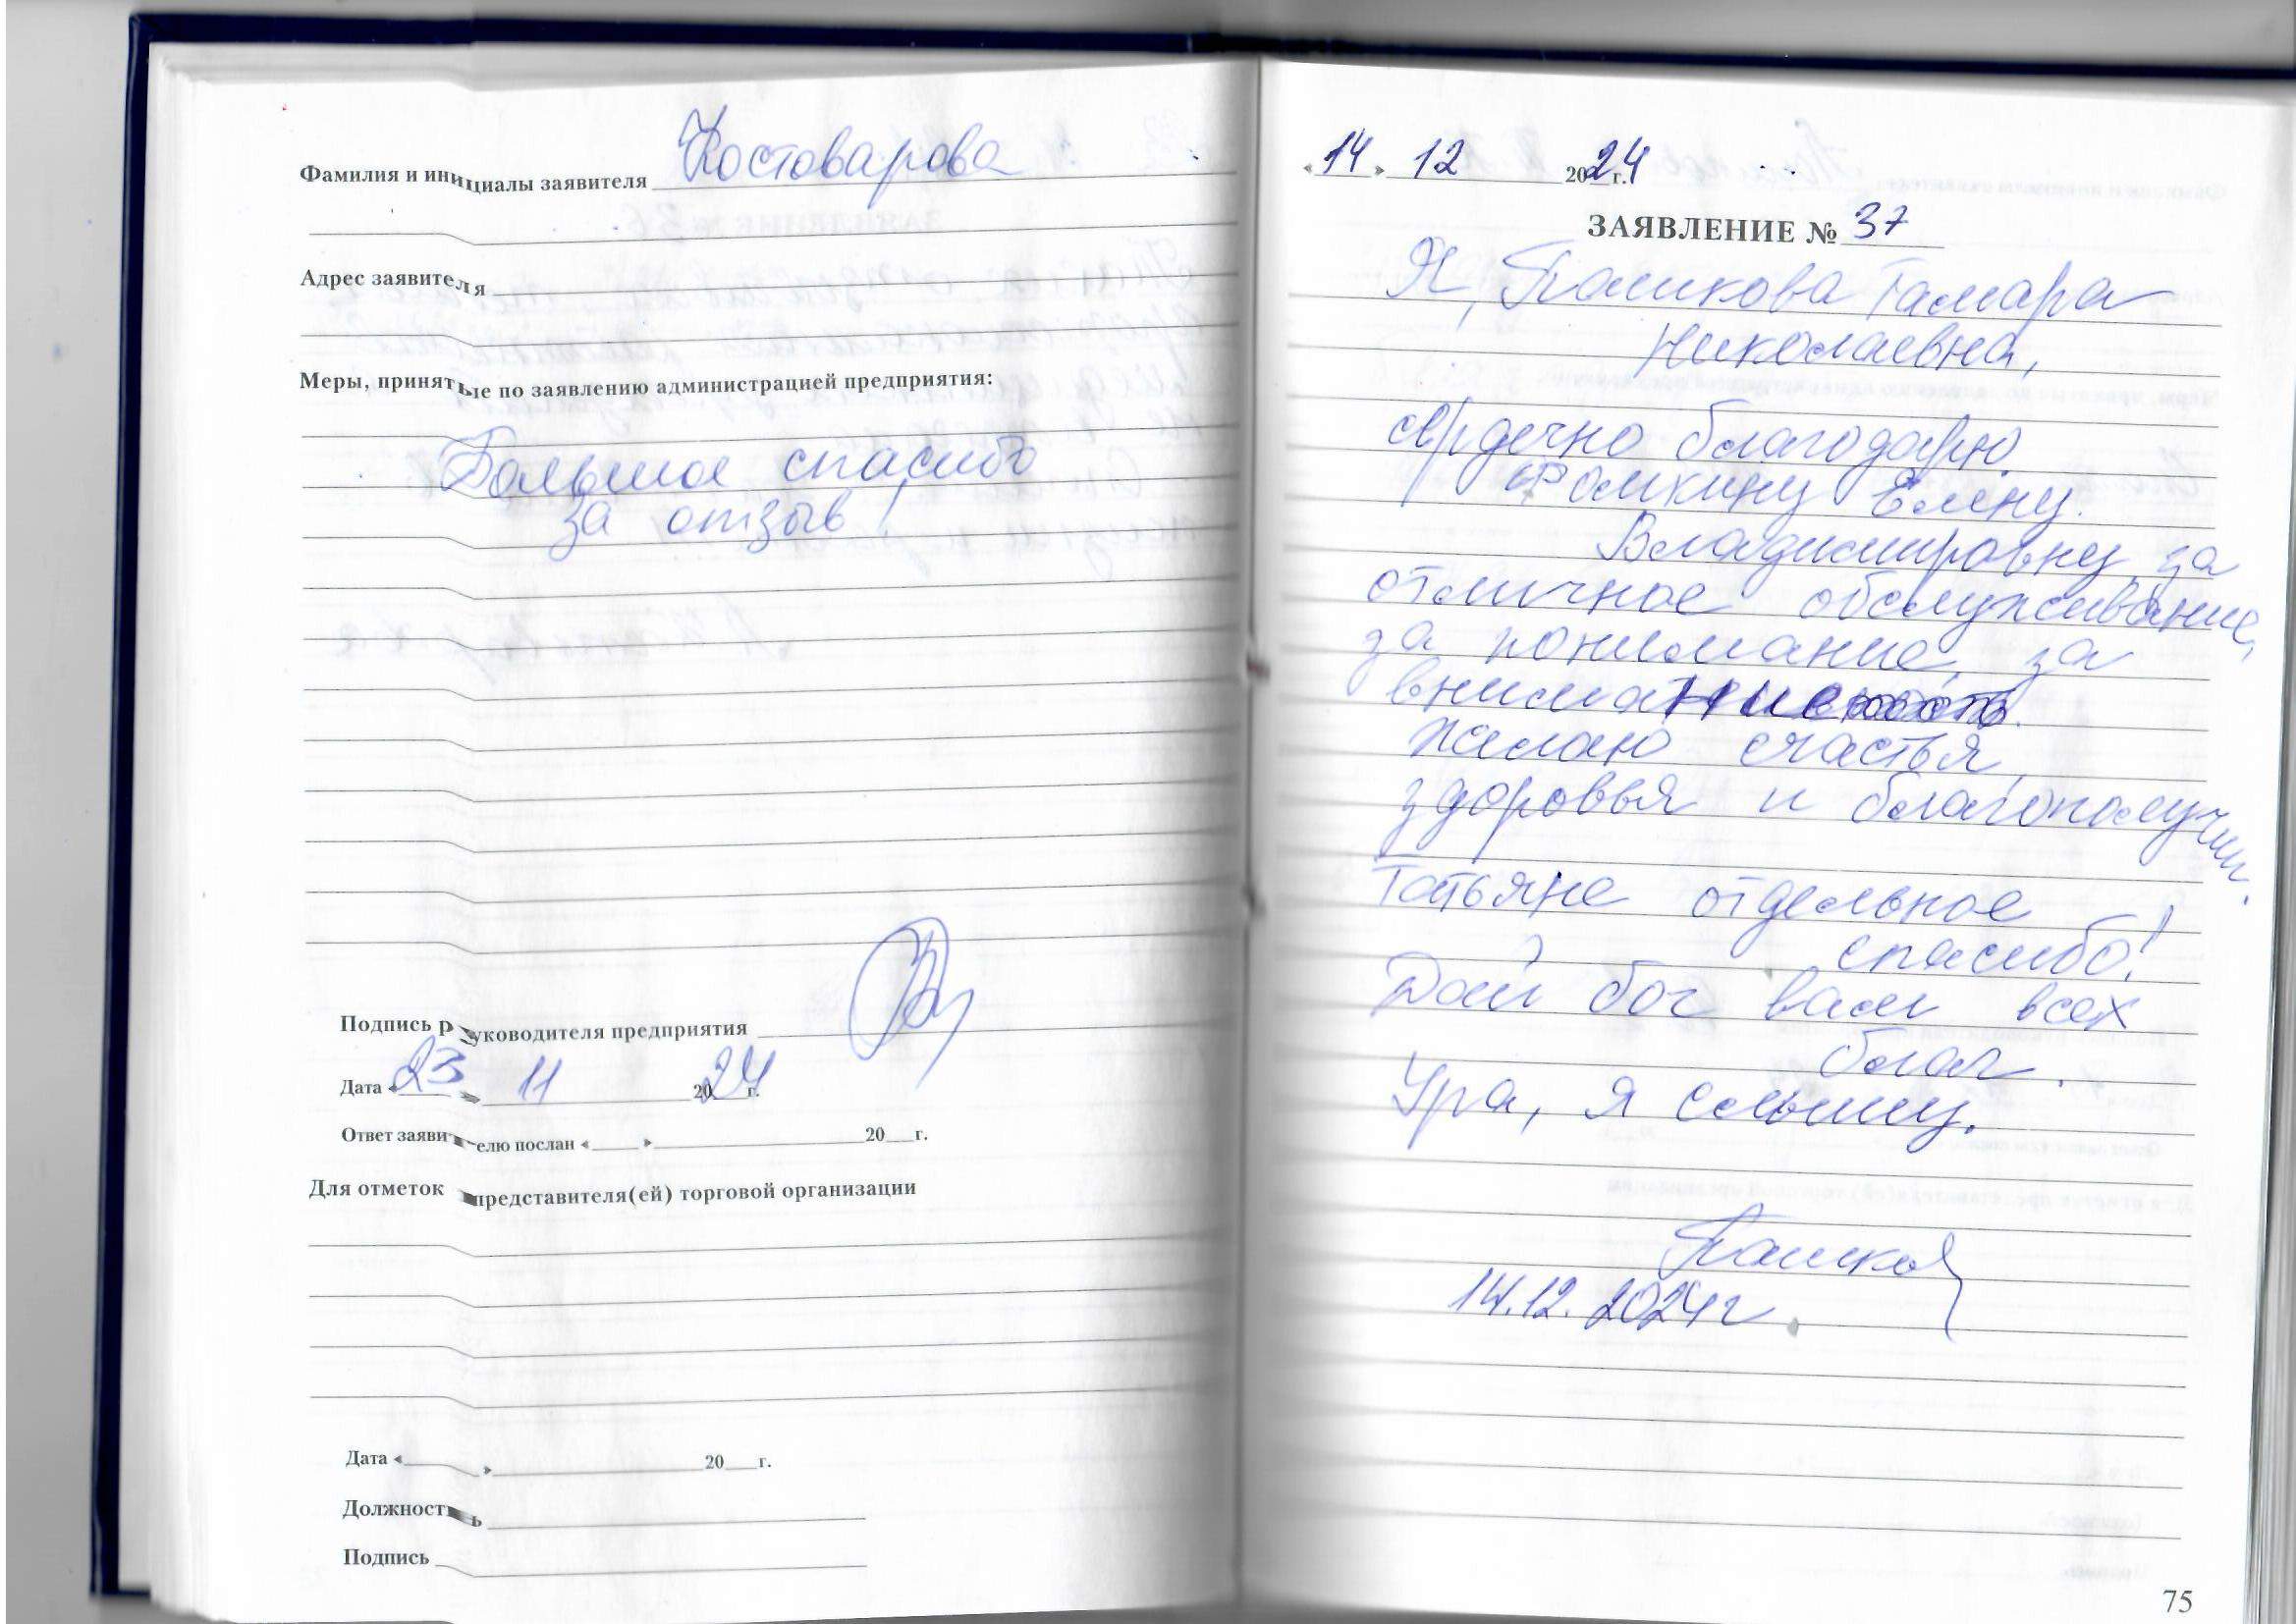 Фамилия и инициалы заявителя Костоварова
Адрес заявителя
Меры, принятые по заявлению администрацией предприятия:
Большое спасибо
за отзыв!
Подпись руководителя предприятия
Дата «23» 11 2024 г.
Ответ заявителю послан « » 20 г.
Для отметок представителя(ей) торговой организации
Дата « » 20 г.
Должность
Подпись
«14» 12 2024 г.
ЗАЯВЛЕНИЕ № 37
Я, Пашкова Тамара
Николаевна,
сердечно благодарю
Фомкину Елену
Владимировну за
отличное обслуживание,
за понимание, за
Желаю счастья,
здоровья и благополучии.
Татьяне отдельное
спасибо!
Дай бог вам всех
благ.
Ура, я слышу.
14.12.2024г.
75